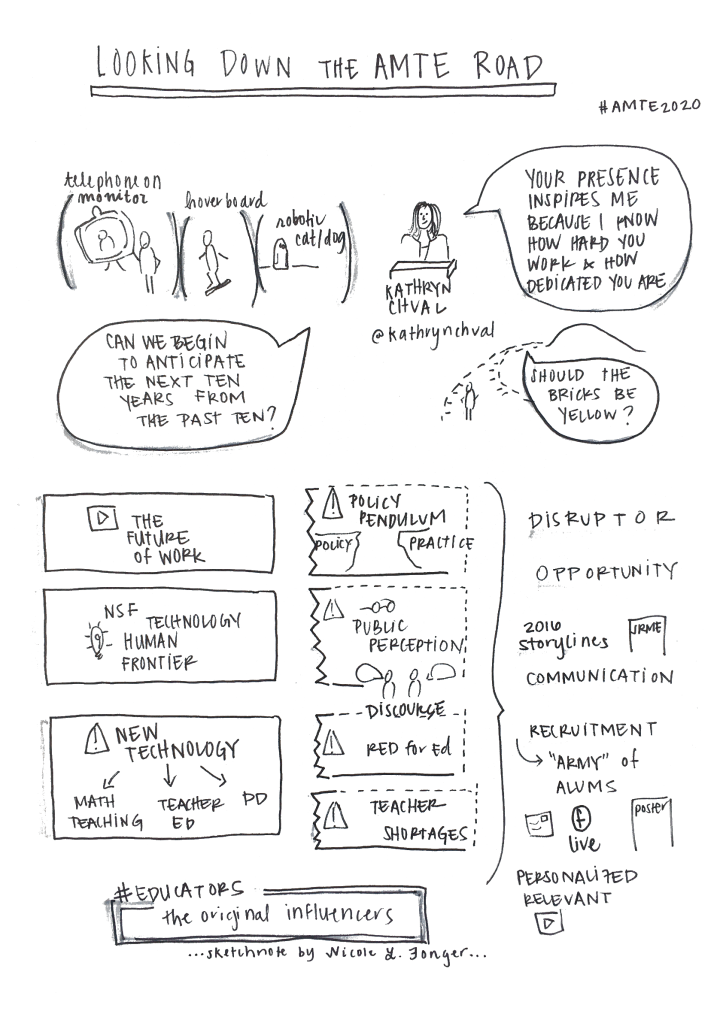 LOOKING DOWN THE AMTE ROAD
#AMTE2020
telephone on
monitor
hoverboard
robotic
cat/dog
KATHRYN
CHVAL
@kathrynchval
YOUR PRESENCE
INSPIRES ME
BECAUSE I KNOW
HOW HARD YOU
WORK & HOW
DEDICATED YOU ARE
CAN WE BEGIN
TO ANTICIPATE
THE NEXT TEN
YEARS FROM
THE PAST TEN?
SHOULD THE
BRICKS BE
YELLOW?
THE
FUTURE
OF WORK
NSF TECHNOLOGY
HUMAN
FRONTIER
NEW
TECHNOLOGY
MATH
TEACHING
TEACHER
ED
PD
POLICY
PENDULUM
POLICY
PRACTICE
PUBLIC
PERCEPTION
DISCOURSE
RED for Ed
TEACHER
SHORTAGES
DISRUPTOR
OPPORTUNITY
2016
storylines
JRME
COMMUNICATION
RECRUITMENT
"ARMY" of
ALUMS
f
live
poster
PERSONALIZED
RELEVANT
#EDUCATORS
the original influencers
...sketchnote by Nicole L. Fonger...